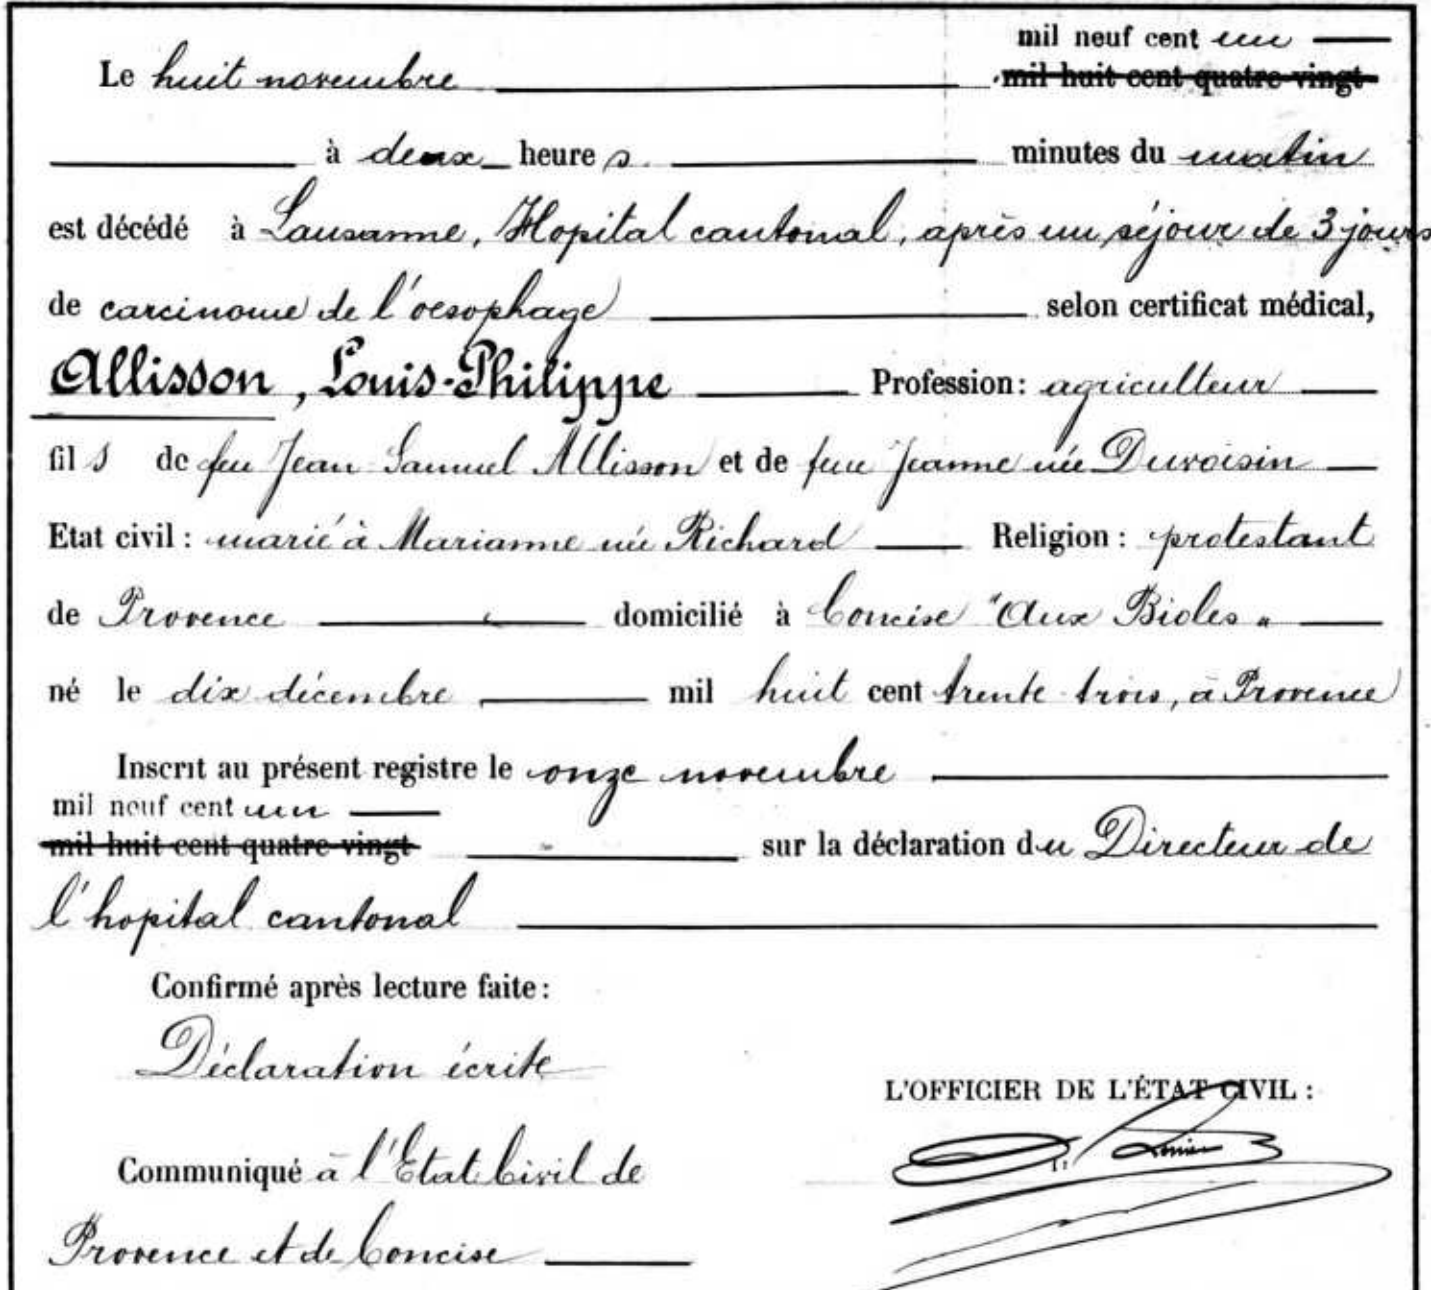 mil neuf cent un
Le huit novembre mil huit cent quatre-vingt
à deux heures minutes du matin
est décédé à Lausanne, Hopital cantonal, après un séjour de 3 jours
de carcinome de l'oesophage selon certificat médical,
Allisson, Louis-Philippe Profession: agriculteur
fils de feu Jean Samuel Allisson et de feue Jeanne née Duvoisin
Etat civil: marié à Marianne née Richard Religion: protestant
de Provence domicilié à Concise "Aux Bioles"
né le dix décembre mil huit cent trente trois, à Provence
Inscrit au présent registre le onze novembre
mil neuf cent un
mil huit cent quatre-vingt sur la déclaration du Directeur de
l'hopital cantonal
Confirmé après lecture faite:
Déclaration écrite
L'OFFICIER DE L'ÉTAT CIVIL:
Communiqué à l'Etat Civil de
Provence et de Concise